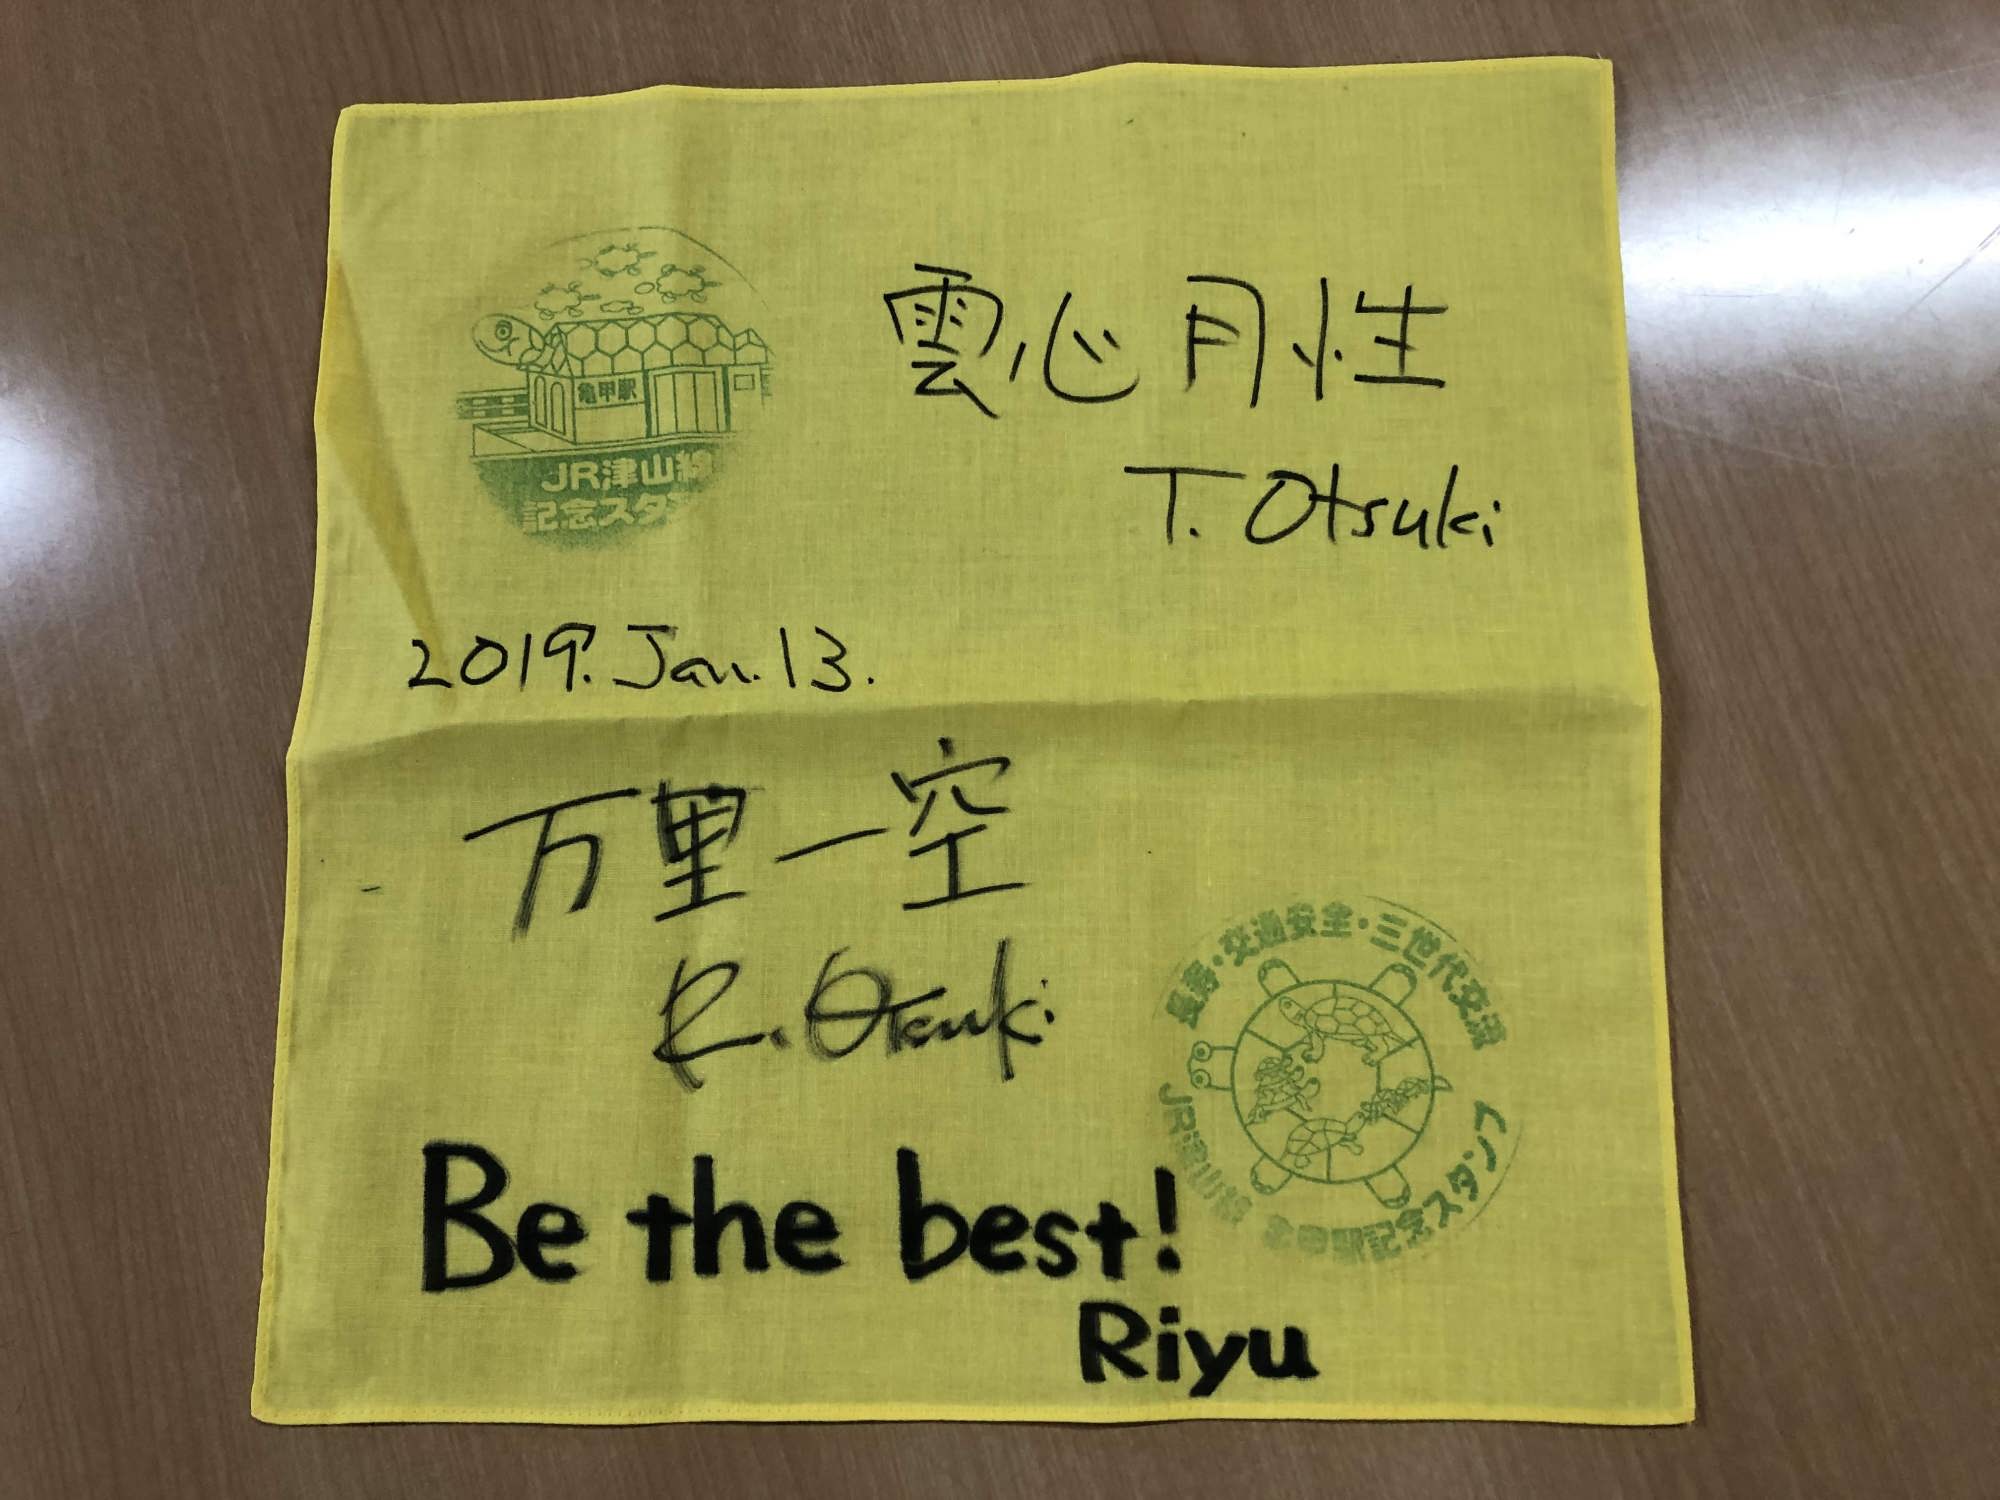 亀甲駅
JR津山線
記念スタ
雲心月性
T. Otsuki
2019. Jan. 13.
万里一空
R. Otsuki
長寿・交通安全・三世代交流
JR津山線 亀甲駅記念スタンプ
Be the best!
Riyu